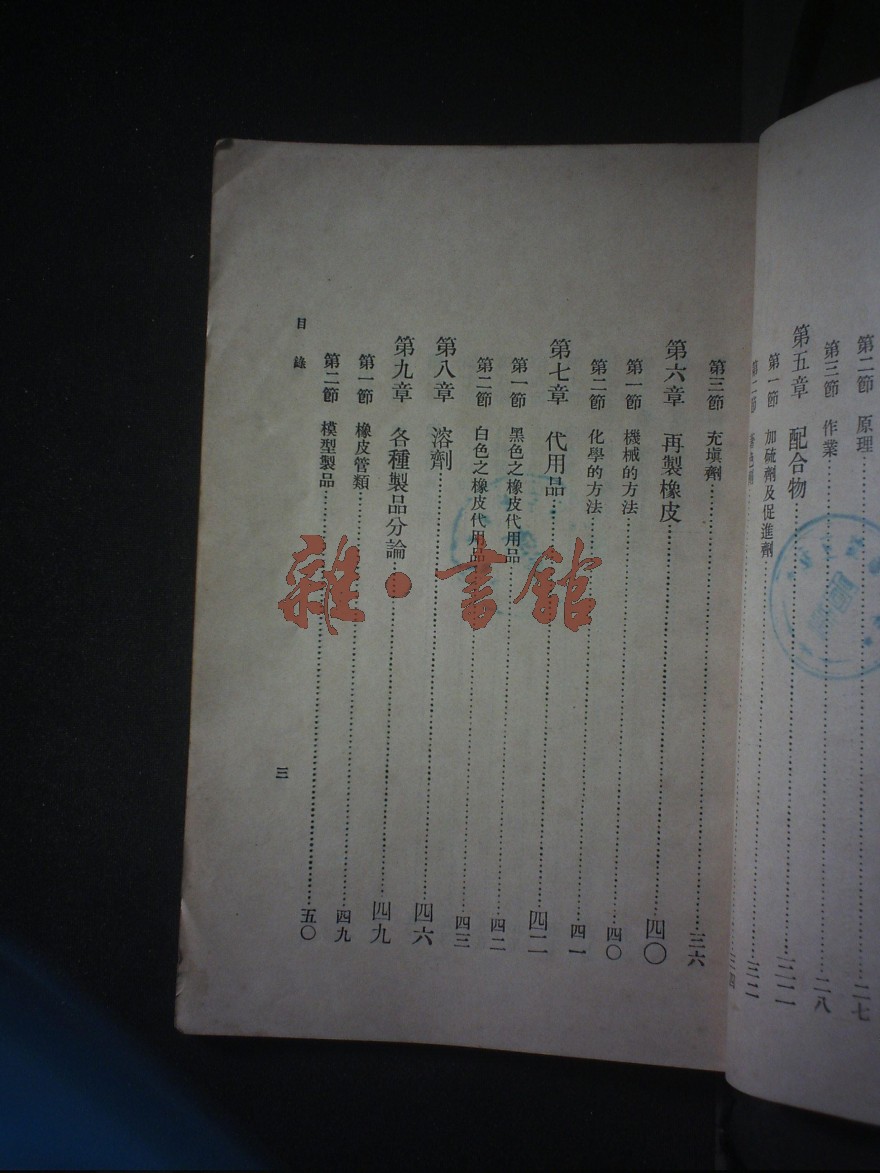 第二節 原理 二七
第三節 作業 二八
第五章 配合物 三二
第一節 加硫劑及促進劑 三二
第三節 充塡劑 三六
第六章 再製橡皮 四〇
第一節 機械的方法 四〇
第二節 化學的方法 四一
第七章 代用品 四二
第一節 黑色之橡皮代用品 四二
第二節 白色之橡皮代用品 四三
第八章 溶劑 四六
第九章 各種製品分論 四九
第一節 橡皮管類 四九
第二節 模型製品 五〇
目錄
三
雜·書館